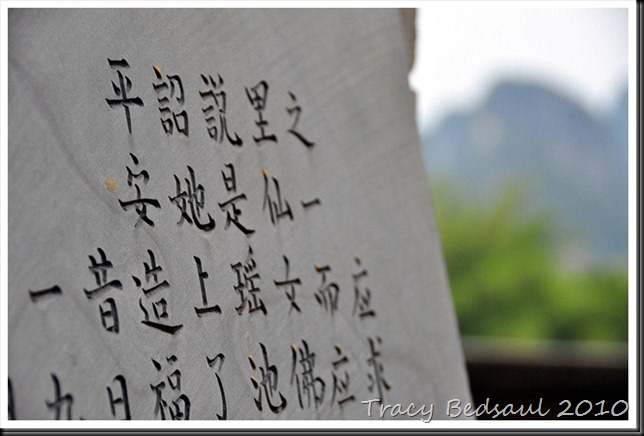 一九
昔日
平安造福
詔她上了
説是瑶池
里仙女佛
之一而应
应求
Tracy Bedsaul 2010